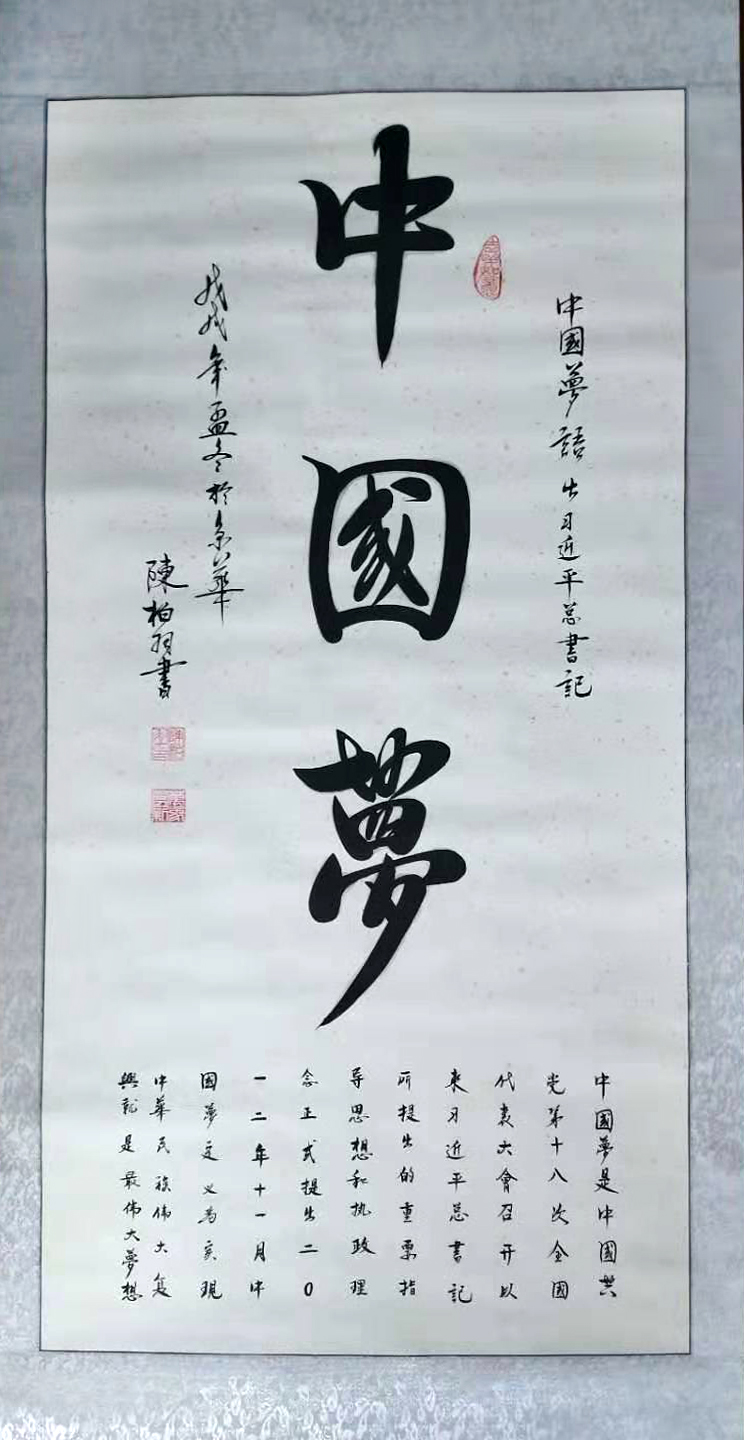 中國夢語出习近平总書記
中國夢
戊戌年孟冬於京華
陳柏羽書
中國夢是中國共
党第十八次全國
代表大會召开以
来习近平总書記
所提出的重要指
导思想和执政理
念正式提出二0
一二年十一月中
國夢定义为实现
中華民族伟大复
興就是最伟大夢想